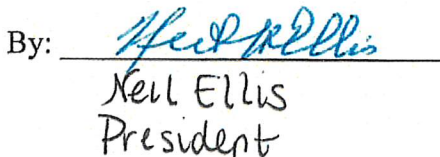 By: Neil R Ellis
Neil Ellis
President